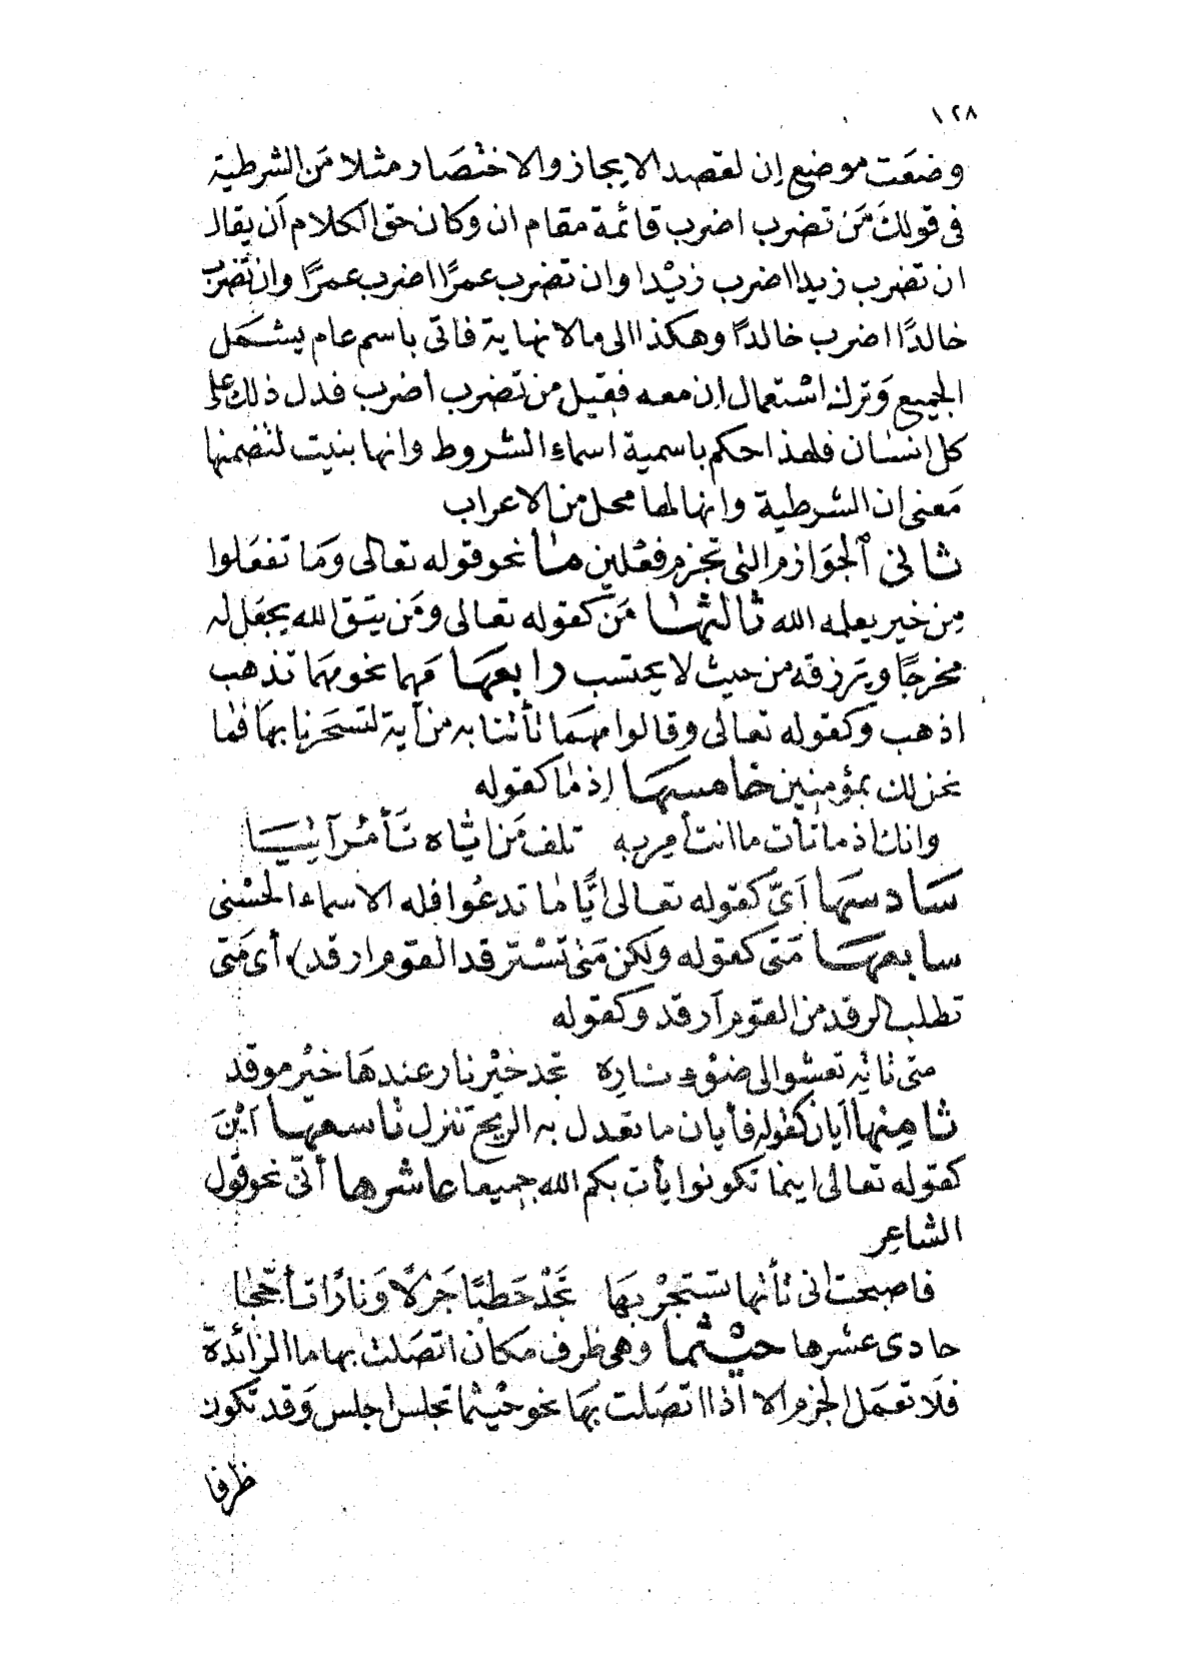 ١٢٨
وضعَت موضع إن لقصد الايجاز والاختصار مثلا مَن الشرطية
فى قولك مَن تضرب اضرب قائمة مقام ان وكان حق الكلام أن يقال
ان تضرب زيدا اضرب زيْدا وان تضرب عمرًا اضرب عمرًا وان تضرب
خالدًا اضرب خالدًا وهكذا الى مالا نهاية فاتى باسم عام يشمل
الجميع وَترك اشتعمال إن معه فقيل من تضرب أضرب فدل ذلك على
كل انسان فلهذا حكم باسمية اسماء الشروط وانها بنيت لتضمنها
مَعنى ان الشرطية وانها لها محل من الاعراب
ثانى الجوَازم التى تجزم فعْلين مَا نحو قوله تعالى وَما تفعَلوا
مِن خير يعلمه الله ثالثها مَن كقوله تعالى ومَن يتق الله يجعَل له
مخرجًا ويَرزقه من حيث لا يحتسب رابعهَا مَهما نحو مهمَا تذهب
اذهب وكقوله تعالى وقالوا مهمَا تأتنا به من آية لتسحَرنا بهَا فمَا
نحن لك بمؤمنين خامسهَا إذ مَا كقوله
وانك اذ ما تأت ما انت أمِر به تلف مَن اياه تَأمُر آتيَا
سَادسهَا أىّ كقوله تعالى ايًّا مَا تدعُوا فله الاسماء الحسْنى
سابعهَا مَتى كقوله ولكن مَتى تسْترقد القوم ارقد) أى مَتى
تطلب الرقد من القوم أرقد وكقوله
متى تاتِه تعشوا الى ضوْء نارِه تجد خيْر نار عندهَا خيْر موقد
ثامِنها أيان كقوله فأيان ما تعدل به الريح تنزل تاسعهَا أيْنَ
كقوله تعالى اينما تكونوا يأت بكم الله جميعا عاشرها أنّى نحو قول
الشاعِر
فاصبحت انى تأتها تستجْر بهَا تجَدْ حَطبًا جَزلًا وَنارًا تأجّجَا
حادى عشرها حيْثما وهى ظرف مَكان اتصَلت بها ما الزائدة
فلَا تعمَل الجزم الا اذا اتصَلت بهَا نحو حيْثما تجلس اجلس وَقد تكون
ظرفا